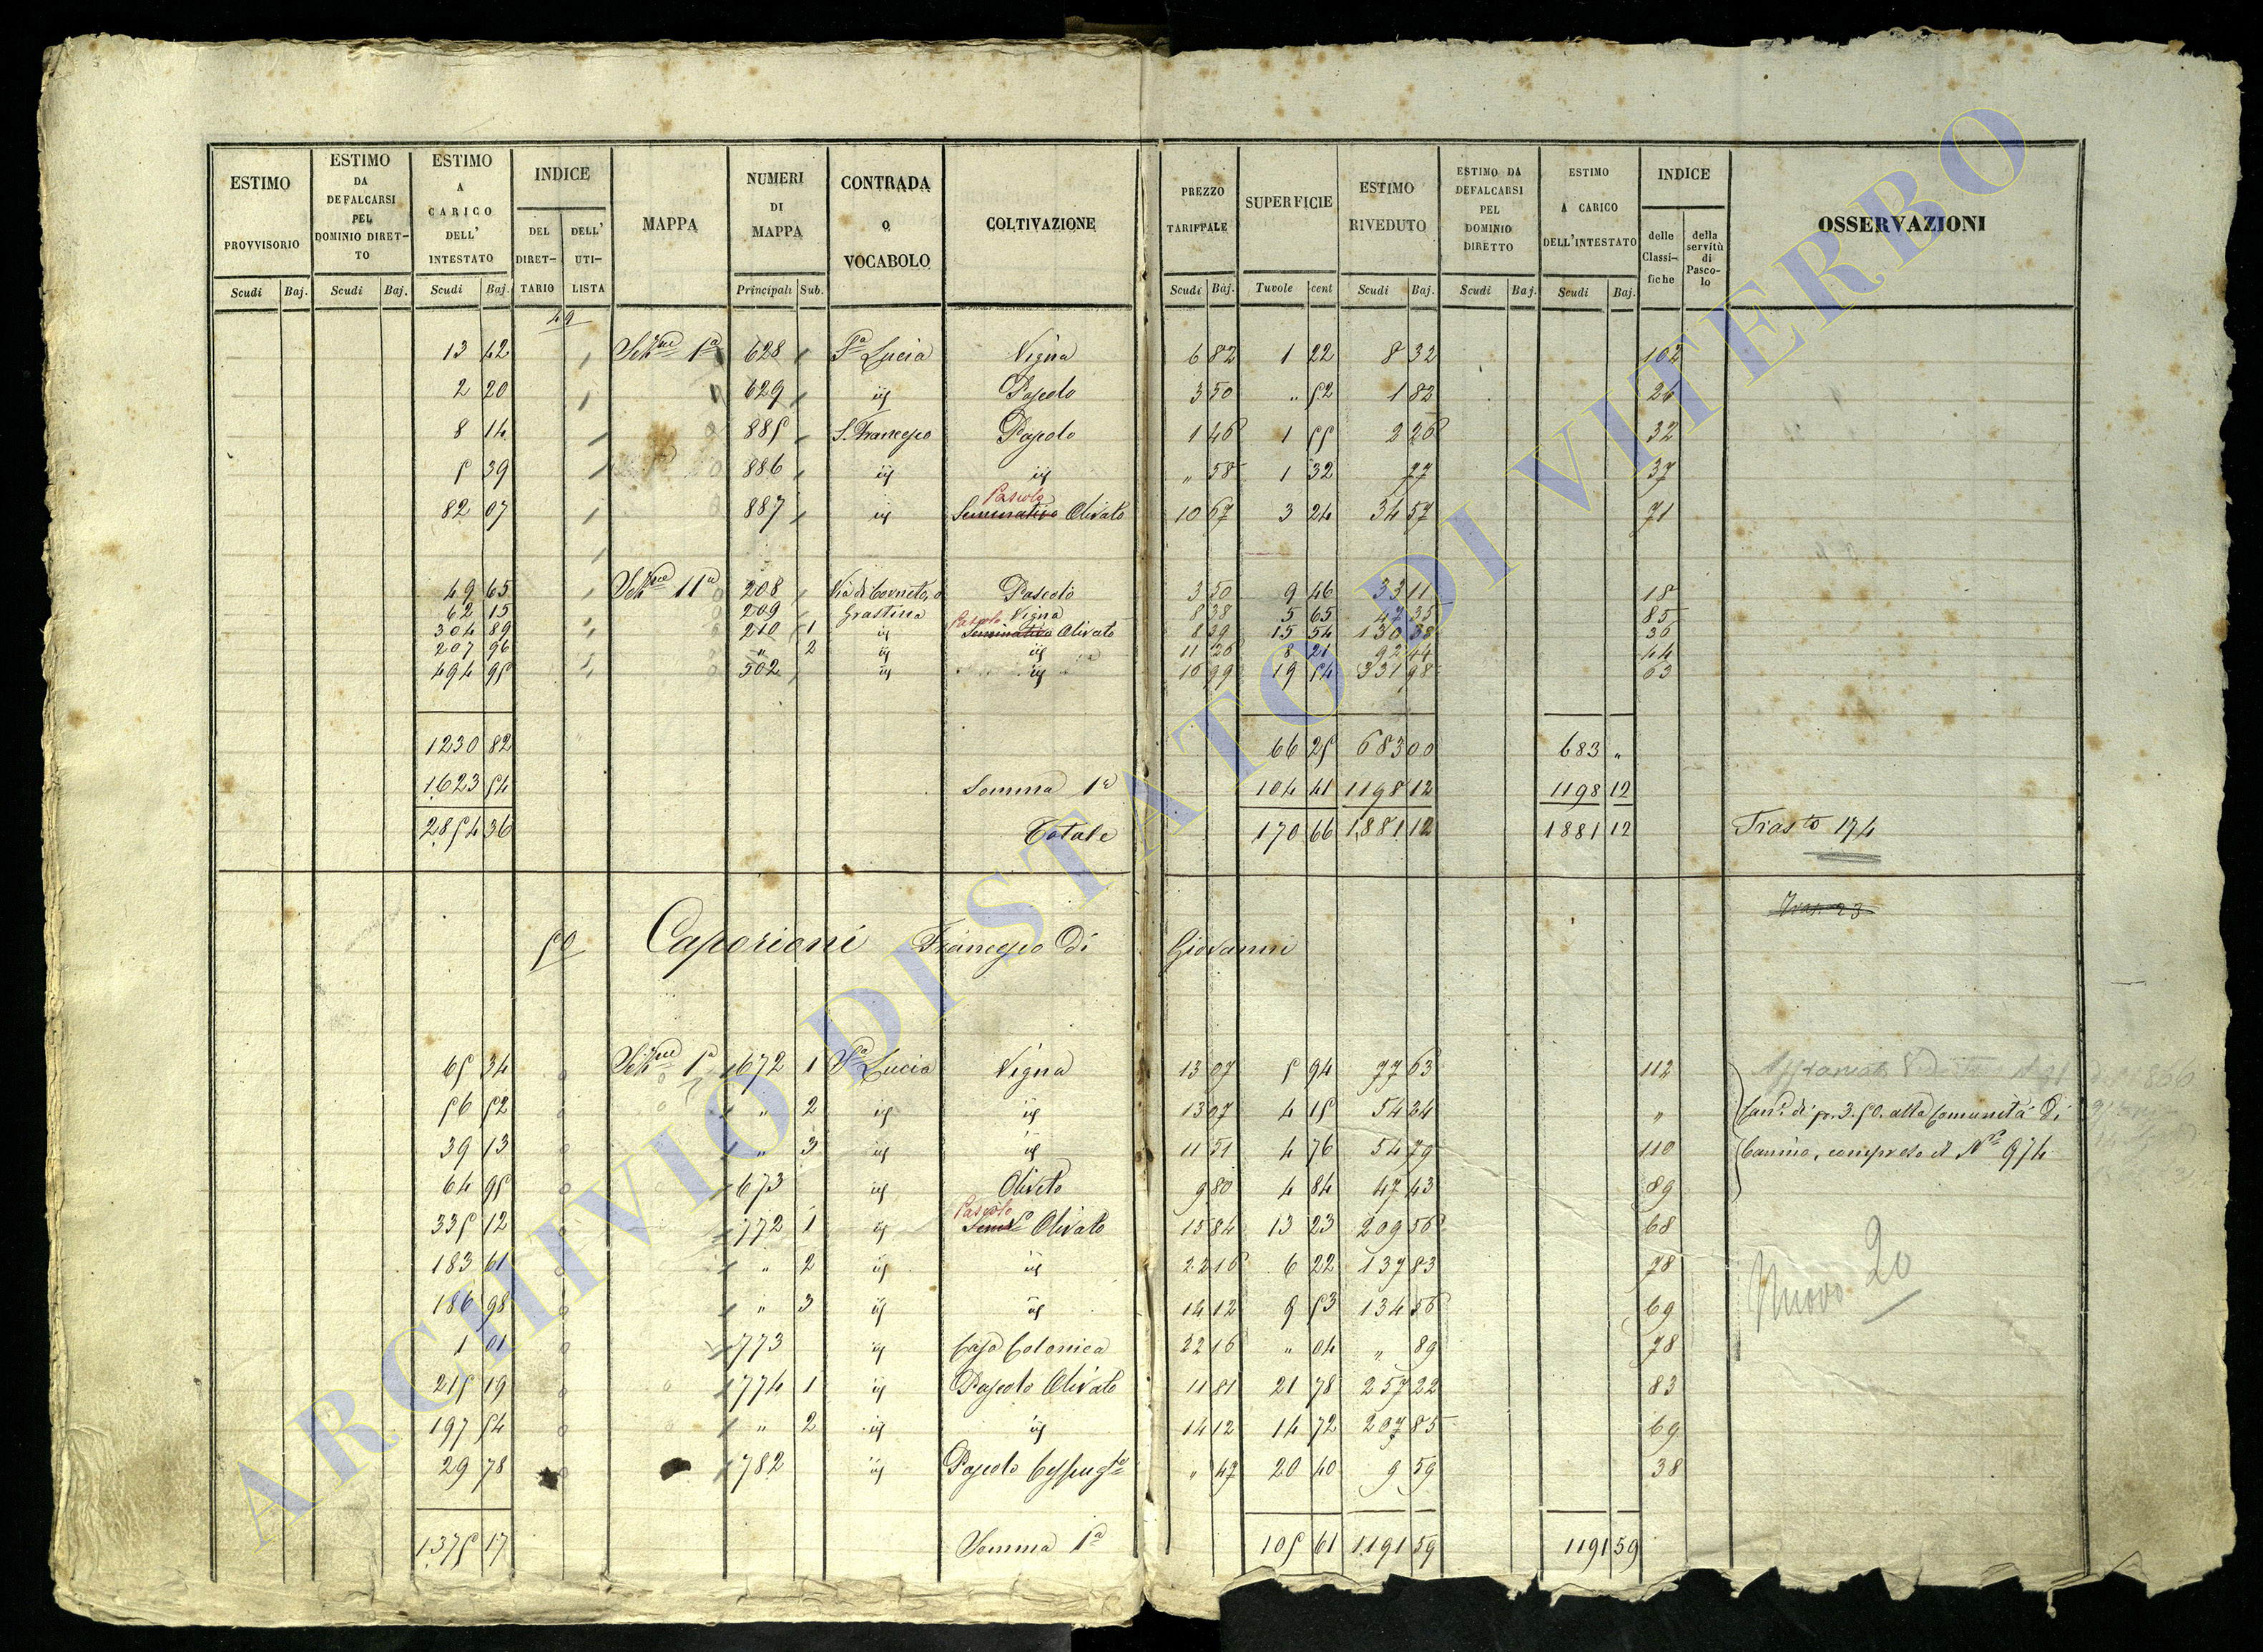 ESTIMO PROVVISORIO | ESTIMO DA DEFALCARSI PEL DOMINIO DIRETTO | ESTIMO A CARICO DELL' INTESTATO | INDICE DEL DIRETTARIO | DELL' UTILISTA | MAPPA | NUMERI DI MAPPA | CONTRADA O VOCABOLO | COLTIVAZIONE | PREZZO TARIFFALE | SUPERFICIE | ESTIMO RIVEDUTO | ESTIMO DA DEFALCARSI PEL DOMINIO DIRETTO | ESTIMO A CARICO DELL'INTESTATO | INDICE delle Classifiche | della servitù di Pascolo | OSSERVAZIONI
Scudi Baj. Scudi Baj. Scudi Baj. Principali Sub. Scudi Baj. Tavole cent Scudi Baj. Scudi Baj. Scudi Baj.
49
13 42 Sezne 1a 628 Sa Lucia Vigna 6 82 1 22 8 32 102
2 20 629 iij Pascolo 3 50 " 52 1 82 26
8 14 885 S. Francesco Pascolo 1 46 1 55 2 26 32
5 39 886 iij iij " 58 1 32 77 37
Pascolo
82 07 887 iij Seminativo Olivato 10 67 3 24 34 57 71
49 65 Sezne 11a 208 Via di Corneto, o Pascolo 3 50 9 46 33 11 18
62 15 209 Grastina Vigna 8 38 5 65 47 35 85
Pascolo
304 89 210 1 iij Seminativo Olivato 8 39 15 54 130 38 36
207 96 " 2 iij iij 11 26 8 21 92 44 44
494 95 502 iij iij 16 99 19 54 331 98 63
1230 82 66 25 683 00 683 "
1623 54 Somma 1a 104 41 1198 12 1198 12
2854 36 Totale 170 66 1881 12 1881 12 Trasto 174
Tras. 23
50 Caporioni Francesco Di Giovanni
65 34 Sezne 1a 672 1 Sa Lucia Vigna 13 07 5 94 77 63 112
56 52 " 2 iij iij 13 07 4 15 54 24 " Cane. di sc. 3.50. alla Comunità Di
39 13 " 3 iij iij 11 51 4 76 54 79 110 Canino, compreso il No 974
64 95 673 iij Oliveto 9 80 4 84 47 43 89
Pascolo
335 12 772 1 iij Semvo Olivato 15 84 13 23 209 56 68
183 61 " 2 iij iij 22 16 6 22 137 83 78
186 98 " 3 iij iij 14 12 9 53 134 56 69
Nuovo 20
1 01 773 iij Casa Colonica 22 16 " 04 " 89 78
215 19 774 1 iij Pascolo Olivato 11 81 21 78 257 22 83
197 54 " 2 iij iij 14 12 14 72 207 85 69
29 78 782 iij Pascolo Cespugto " 47 20 40 9 59 38
1375 17 Somma 1a 105 61 1191 59 1191 59
ARCHIVIO DI STATO DI VITERBO